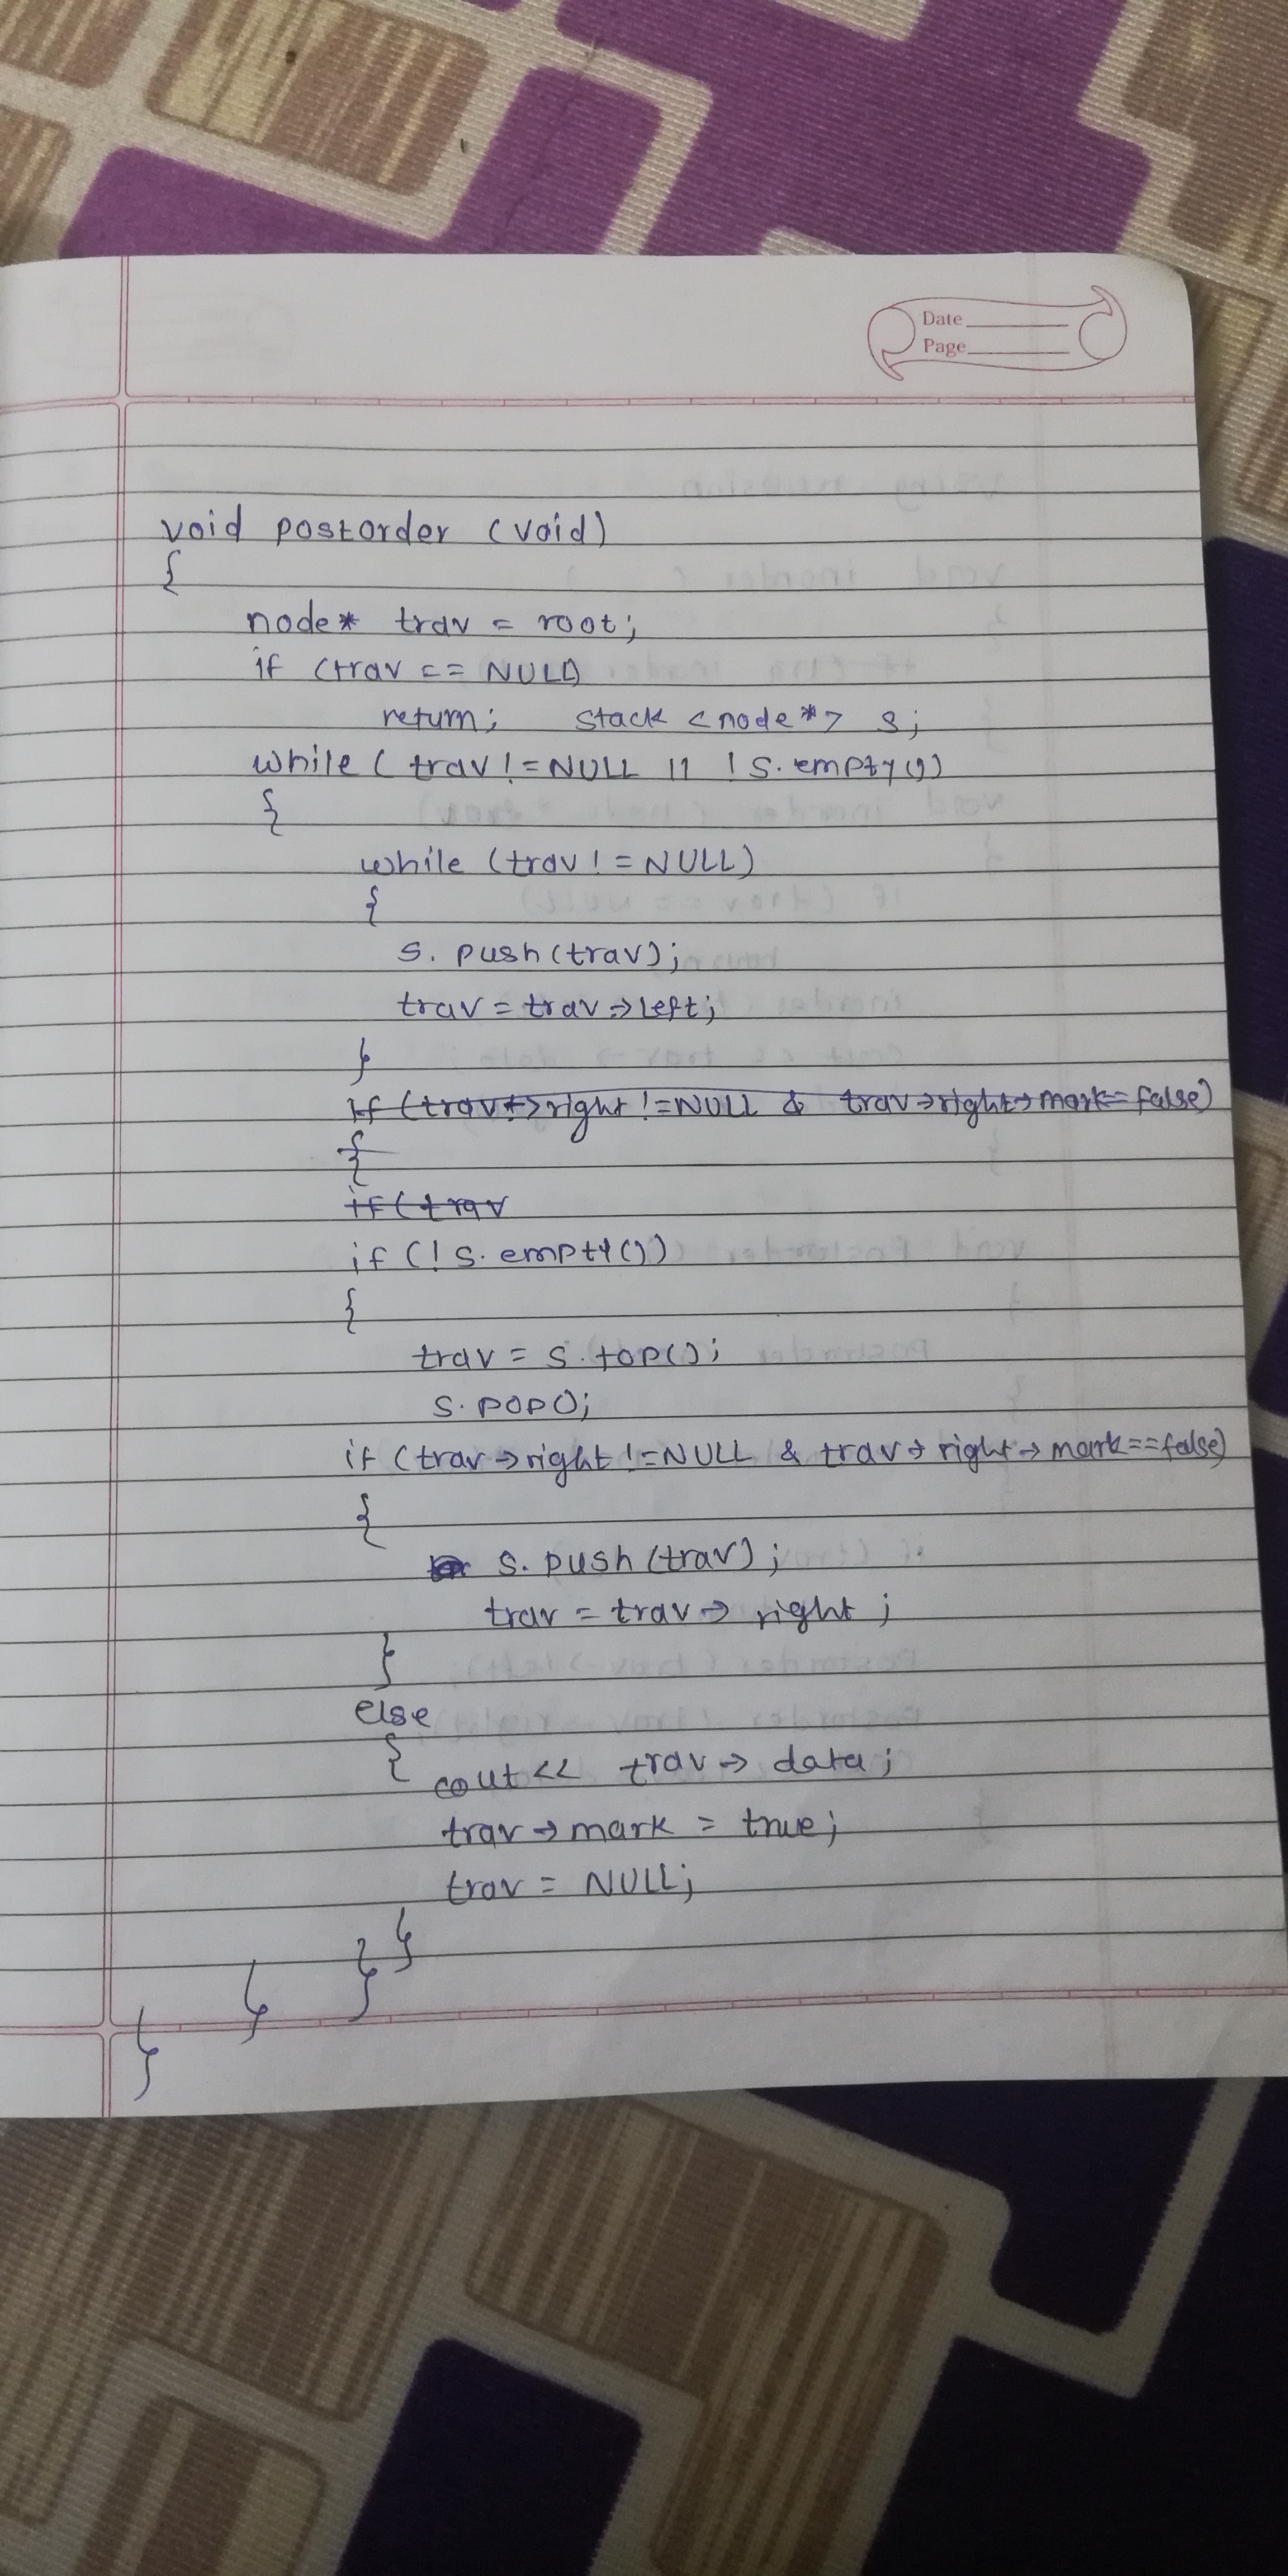 Date
Page
void postorder (void)
{
node* trav = root;
if (trav == NULL)
return; stack <node*> s;
while ( trav != NULL || !s.empty())
{
while (trav != NULL)
{
s.push(trav);
trav = trav->left;
}
if (trav->right != NULL & trav->right->mark=false)
{
if (trav
if (!s.empty())
{
trav = s.top();
s.pop();
if (trav->right != NULL & trav->right->mark==false)
{
s.push(trav);
trav = trav->right;
}
else
{ cout << trav->data;
trav->mark = true;
trav = NULL;
}
}
}
}